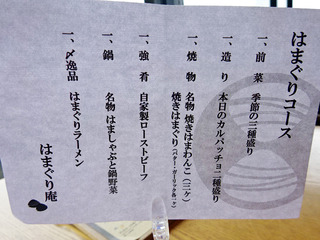 はまぐりコース
一、前菜 季節の三種盛り
一、造り 本日のカルパッチョ二種盛り
一、焼物 名物 焼きはまわんこ(三ヶ)
焼きはまぐり(バター・ガーリック各一ヶ)
一、強肴 自家製ローストビーフ
一、鍋 名物 はましゃぶと鍋野菜
一、〆逸品 はまぐりラーメン
はまぐり庵